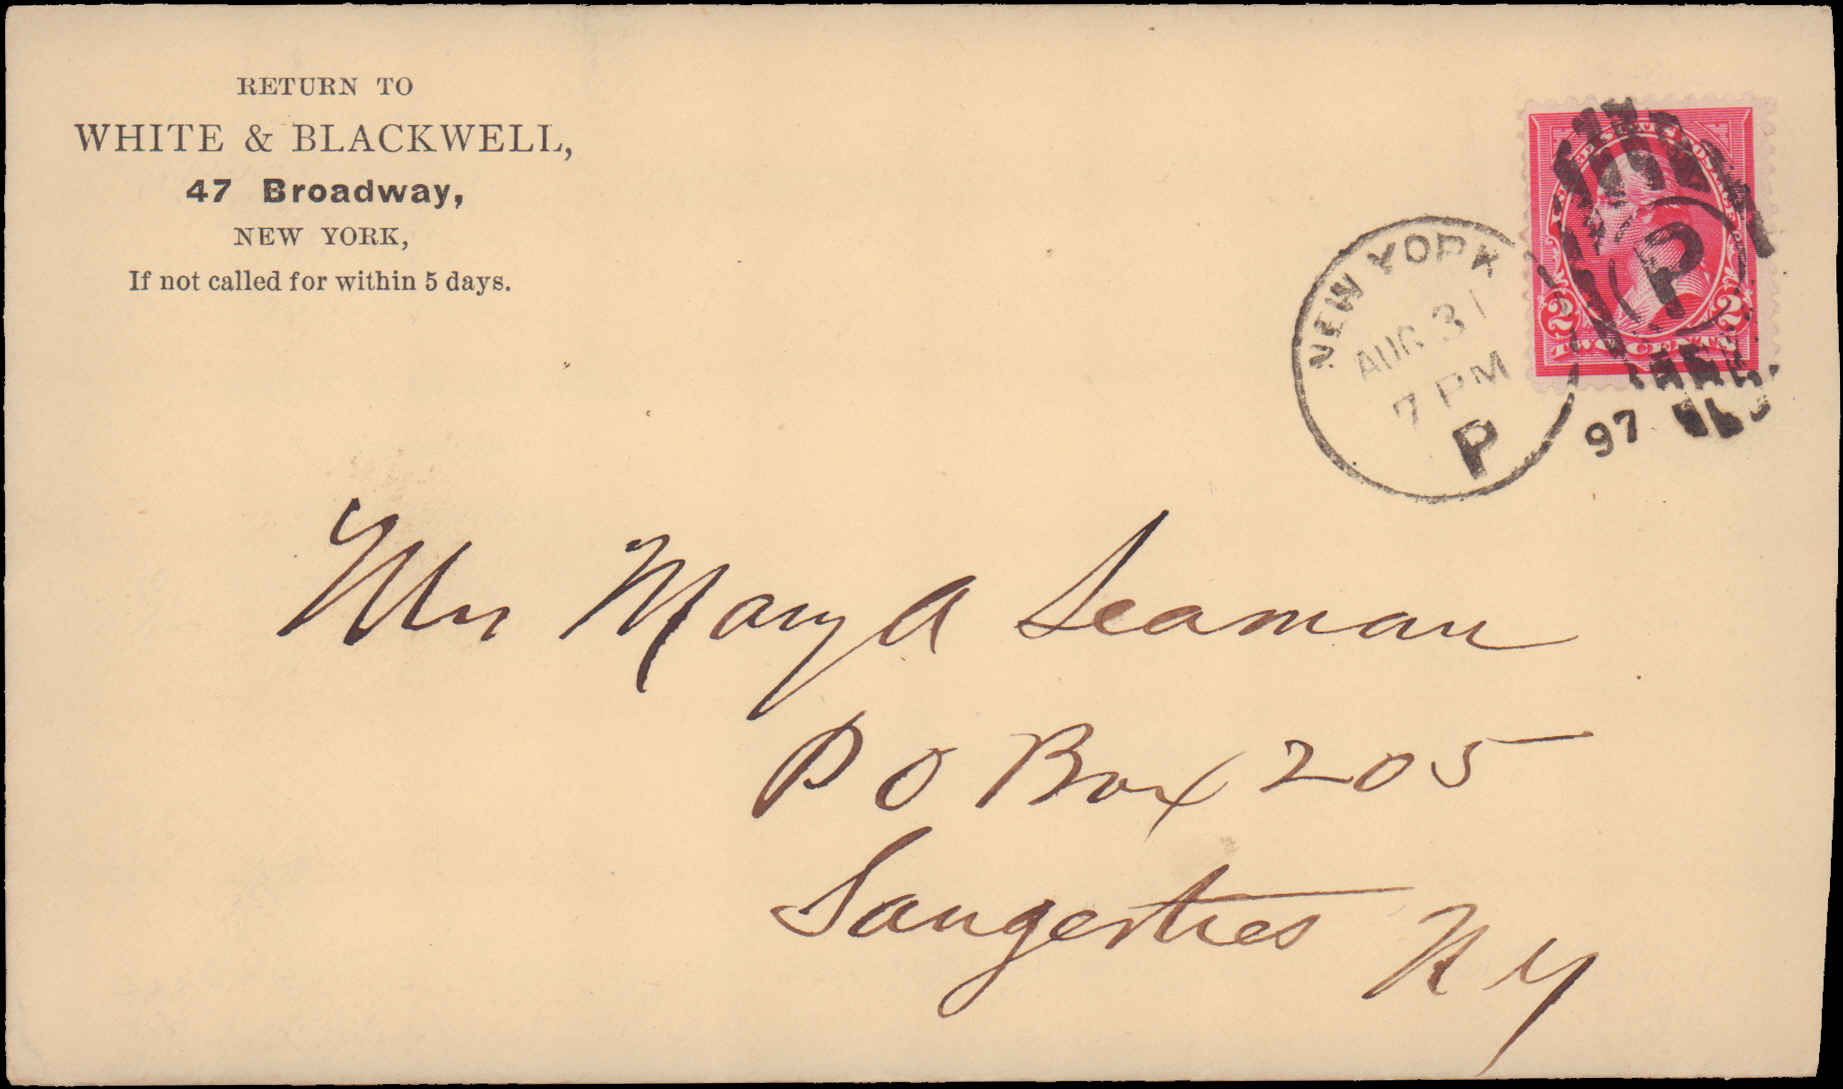 RETURN TO
WHITE & BLACKWELL,
47 Broadway,
NEW YORK,
If not called for within 5 days.
NEW YORK
AUG 31
7 PM
P
97
P
2 2
TWO CENTS
Mrs Mary A Seaman
P O Box 205
Saugerties N Y